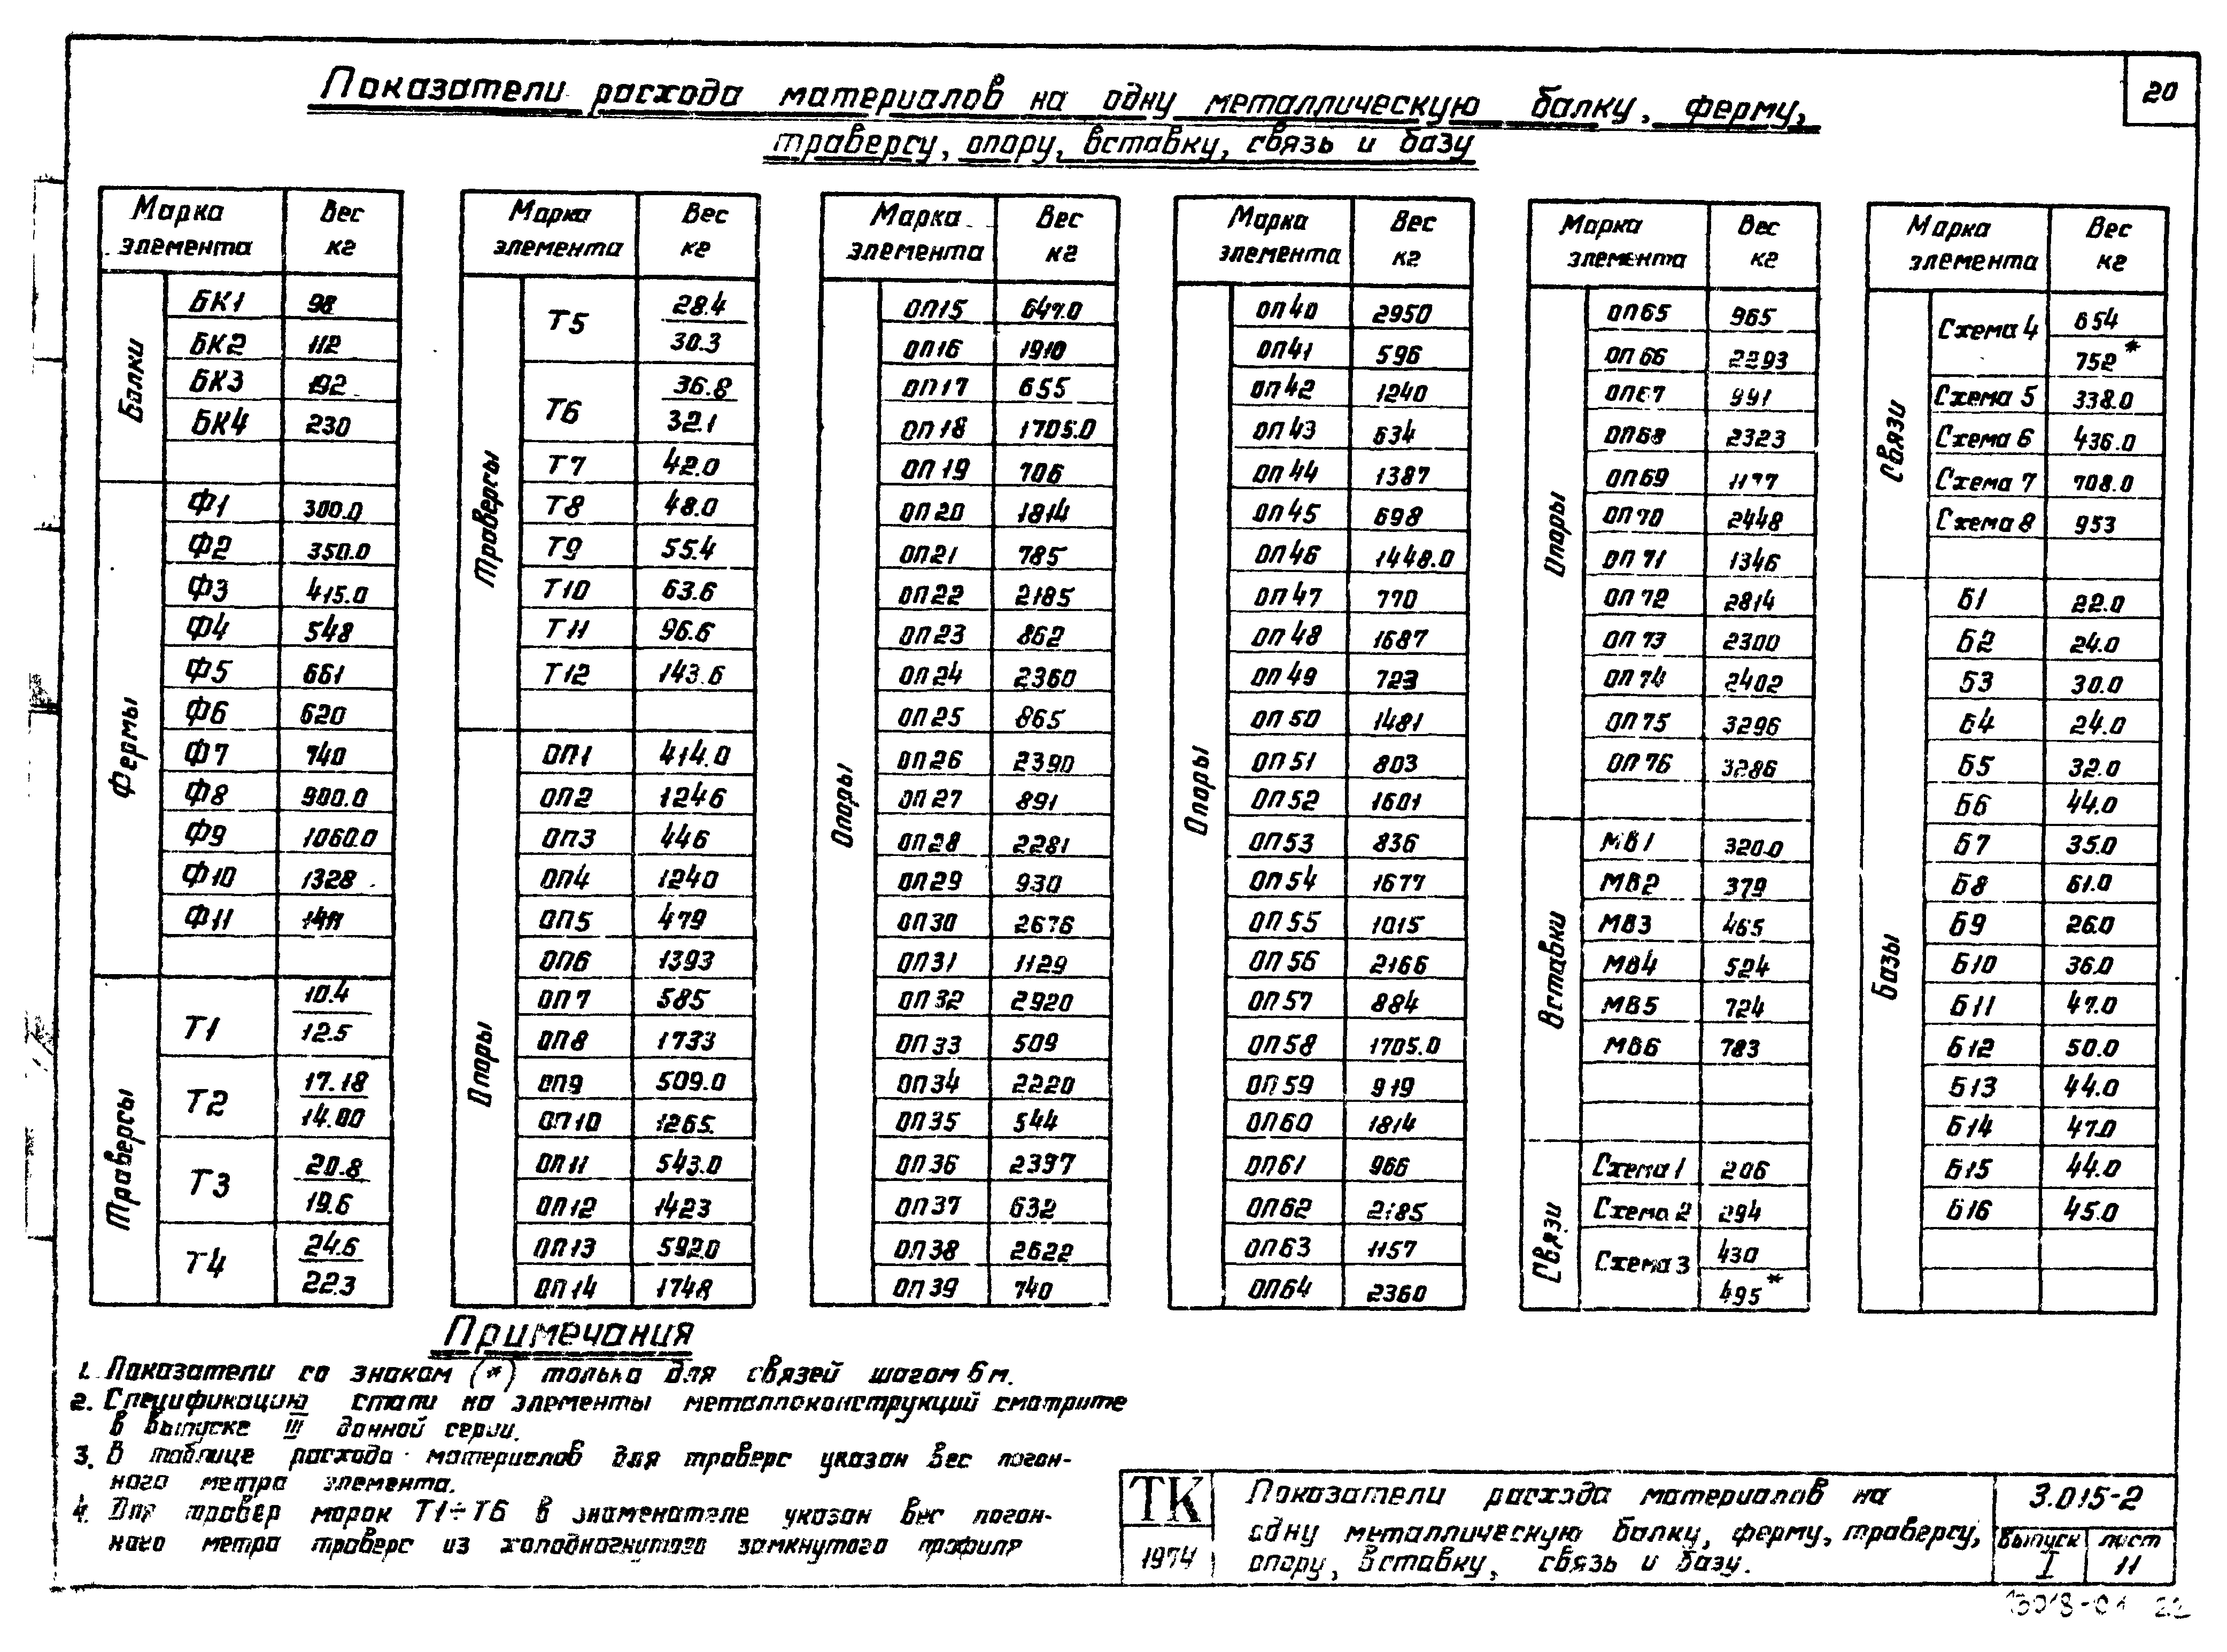 20
Показатели расхода материалов на одну металлическую балку, ферму,
траверсу, опору, вставку, связь и базу
Марка элемента Вес кг
Балки
БК1 98
БК2 112
БК3 192
БК4 230
Фермы
Ф1 300.0
Ф2 350.0
Ф3 415.0
Ф4 548
Ф5 661
Ф6 620
Ф7 740
Ф8 900.0
Ф9 1060.0
Ф10 1328
Ф11
Траверсы
Т1 10.4
12.5
Т2 17.18
14.00
Т3 20.8
19.6
Т4 24.6
22.3
Марка элемента Вес кг
Траверсы
Т5 28.4
30.3
Т6 36.8
32.1
Т7 42.0
Т8 48.0
Т9 55.4
Т10 63.6
Т11 96.6
Т12 143.6
Опоры
ОП1 414.0
ОП2 1246
ОП3 446
ОП4 1240
ОП5 479
ОП6 1393
ОП7 585
ОП8 1733
ОП9 509.0
ОП10 1265.
ОП11 543.0
ОП12 1423
ОП13 592.0
ОП14 1748
Марка элемента Вес кг
Опоры
ОП15 647.0
ОП16 1910
ОП17 655
ОП18 1705.0
ОП19 706
ОП20 1814
ОП21 785
ОП22 2185
ОП23 862
ОП24 2360
ОП25 865
ОП26 2390
ОП27 891
ОП28 2281
ОП29 930
ОП30 2676
ОП31 1129
ОП32 2920
ОП33 509
ОП34 2220
ОП35 544
ОП36 2397
ОП37 632
ОП38 2622
ОП39 740
Марка элемента Вес кг
Опоры
ОП40 2950
ОП41 596
ОП42 1240
ОП43 634
ОП44 1387
ОП45 698
ОП46 1448.0
ОП47 770
ОП48 1687
ОП49 723
ОП50 1481
ОП51 803
ОП52 1601
ОП53 836
ОП54 1677
ОП55 1015
ОП56 2166
ОП57 884
ОП58 1705.0
ОП59 919
ОП60 1814
ОП61 966
ОП62 2185
ОП63 1157
ОП64 2360
Марка элемента Вес кг
Опоры
ОП65 965
ОП66 2293
ОП67 991
ОП68 2323
ОП69 1177
ОП70 2448
ОП71 1346
ОП72 2814
ОП73 2300
ОП74 2402
ОП75 3296
ОП76 3286
Вставки
МВ1 320.0
МВ2 379
МВ3 465
МВ4 524
МВ5 724
МВ6 783
Связи
Схема 1 206
Схема 2 294
Схема 3 430
495*
Марка элемента Вес кг
Связи
Схема 4 654
752*
Схема 5 338.0
Схема 6 436.0
Схема 7 708.0
Схема 8 953
Базы
Б1 22.0
Б2 24.0
Б3 30.0
Б4 24.0
Б5 32.0
Б6 44.0
Б7 35.0
Б8 61.0
Б9 26.0
Б10 36.0
Б11 47.0
Б12 50.0
Б13 44.0
Б14 47.0
Б15 44.0
Б16 45.0
Примечания
1. Показатели со знаком (*) только для связей шагом 6 м.
2. Спецификацию стали на элементы металлоконструкций смотрите
в выпуске III данной серии.
3. В таблице расхода материалов для траверс указан вес погон-
ного метра элемента.
4. Для травер марок Т1÷Т6 в знаменателе указан вес погон-
ного метра траверс из холодногнутого замкнутого профиля
ТК
1974
Показатели расхода материалов на
одну металлическую балку, ферму, траверсу,
опору, вставку, связь и базу.
3.015-2
выпуск I
лист 11
13018-01 22